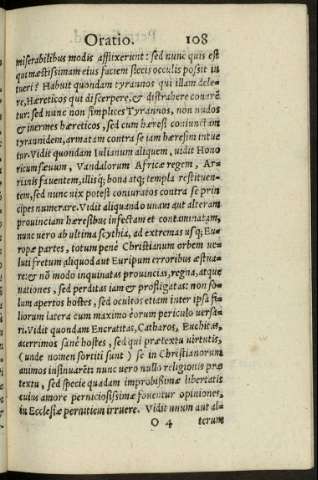 Oratio. 108
miserabilibus modis afflixerunt: sed nunc quis est
qui mæstissimam eius faciem siccis occulis possit in
tueri? Habuit quondam tyrannos qui illam dele-
re, Hæreticos qui discerpere, & distrahere conarẽ
tur: sed nunc non simplices Tyrannos, non nudos
& inermes hæreticos, sed cum hæresi coniunctam
tyrannidem, armatam contra se iam hæresim intue
tur. Vidit quondam Iulianum aliquem, vidit Hono
ricum sæuum, Vandalorum Africæ regem, Ar-
rianis fauentem, illisq; bona atq; templa restituen-
tem, sed nunc vix potest coniuratos contra se prin
cipes numerare. Vidit aliquando vnam aut alteram
prouinciam hæresibus infectam et contaminatam,
nunc vero ab vltima scythia, ad extremas vsq; Eu-
ropæ partes, totum penè Christianum orbem ve-
luti fretum aliquod aut Euripum erroribus æstua-
re: & nõ modo inquinatas prouincias, regna, atque
nationes, sed perditas iam & profligatas: non so-
lum apertos hostes, sed occultos etiam inter ipsa fi-
liorum latera cum maximo eorum periculo versa-
ri. Vidit quondam Encratitas, Catharos, Euchitas,
acerrimos sanè hostes, sed qui prætextu virtutis,
(vnde nomen sortiti sunt) se in Christianorum
animos insinuarẽt: nunc vero nullo religionis præ
textu, sed specie quadam improbissimæ libertatis
cuius amore perniciosissimæ fouentur opiniones,
in Ecclesiæ pernitiem irruere. Vidit vnum aut al-
O 4 terum